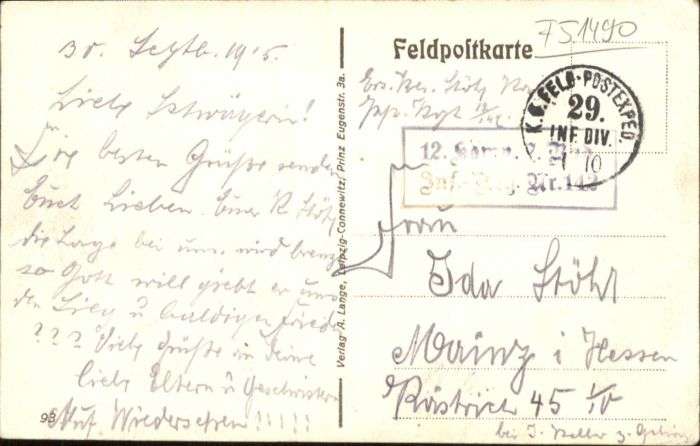 30. Septb. 1915.
Liebe Schwägerin!
Die besten Grüße sendet
Euch Lieben Euer K Stöhr
die Lage bei uns wird brenzl
so Gott will giebt er uns
den Sieg u baldigen Friede
??? Viele Grüße an Deine
liebe Eltern u Geschwistern
Auf Wiedersehen!!!!!
93
Verlag A. Lange, Leipzig-Connewitz, Prinz Eugenstr. 3a.
FS1490
Feldpostkarte
K. B. FELD-POSTEXPED.
29.
INF. DIV.
10
12. Komp.
Inf. Reg. Nr. 142
Frau
Ida Stöhr
Mainz i Hessen
Kästrich 45 IV
bei J.